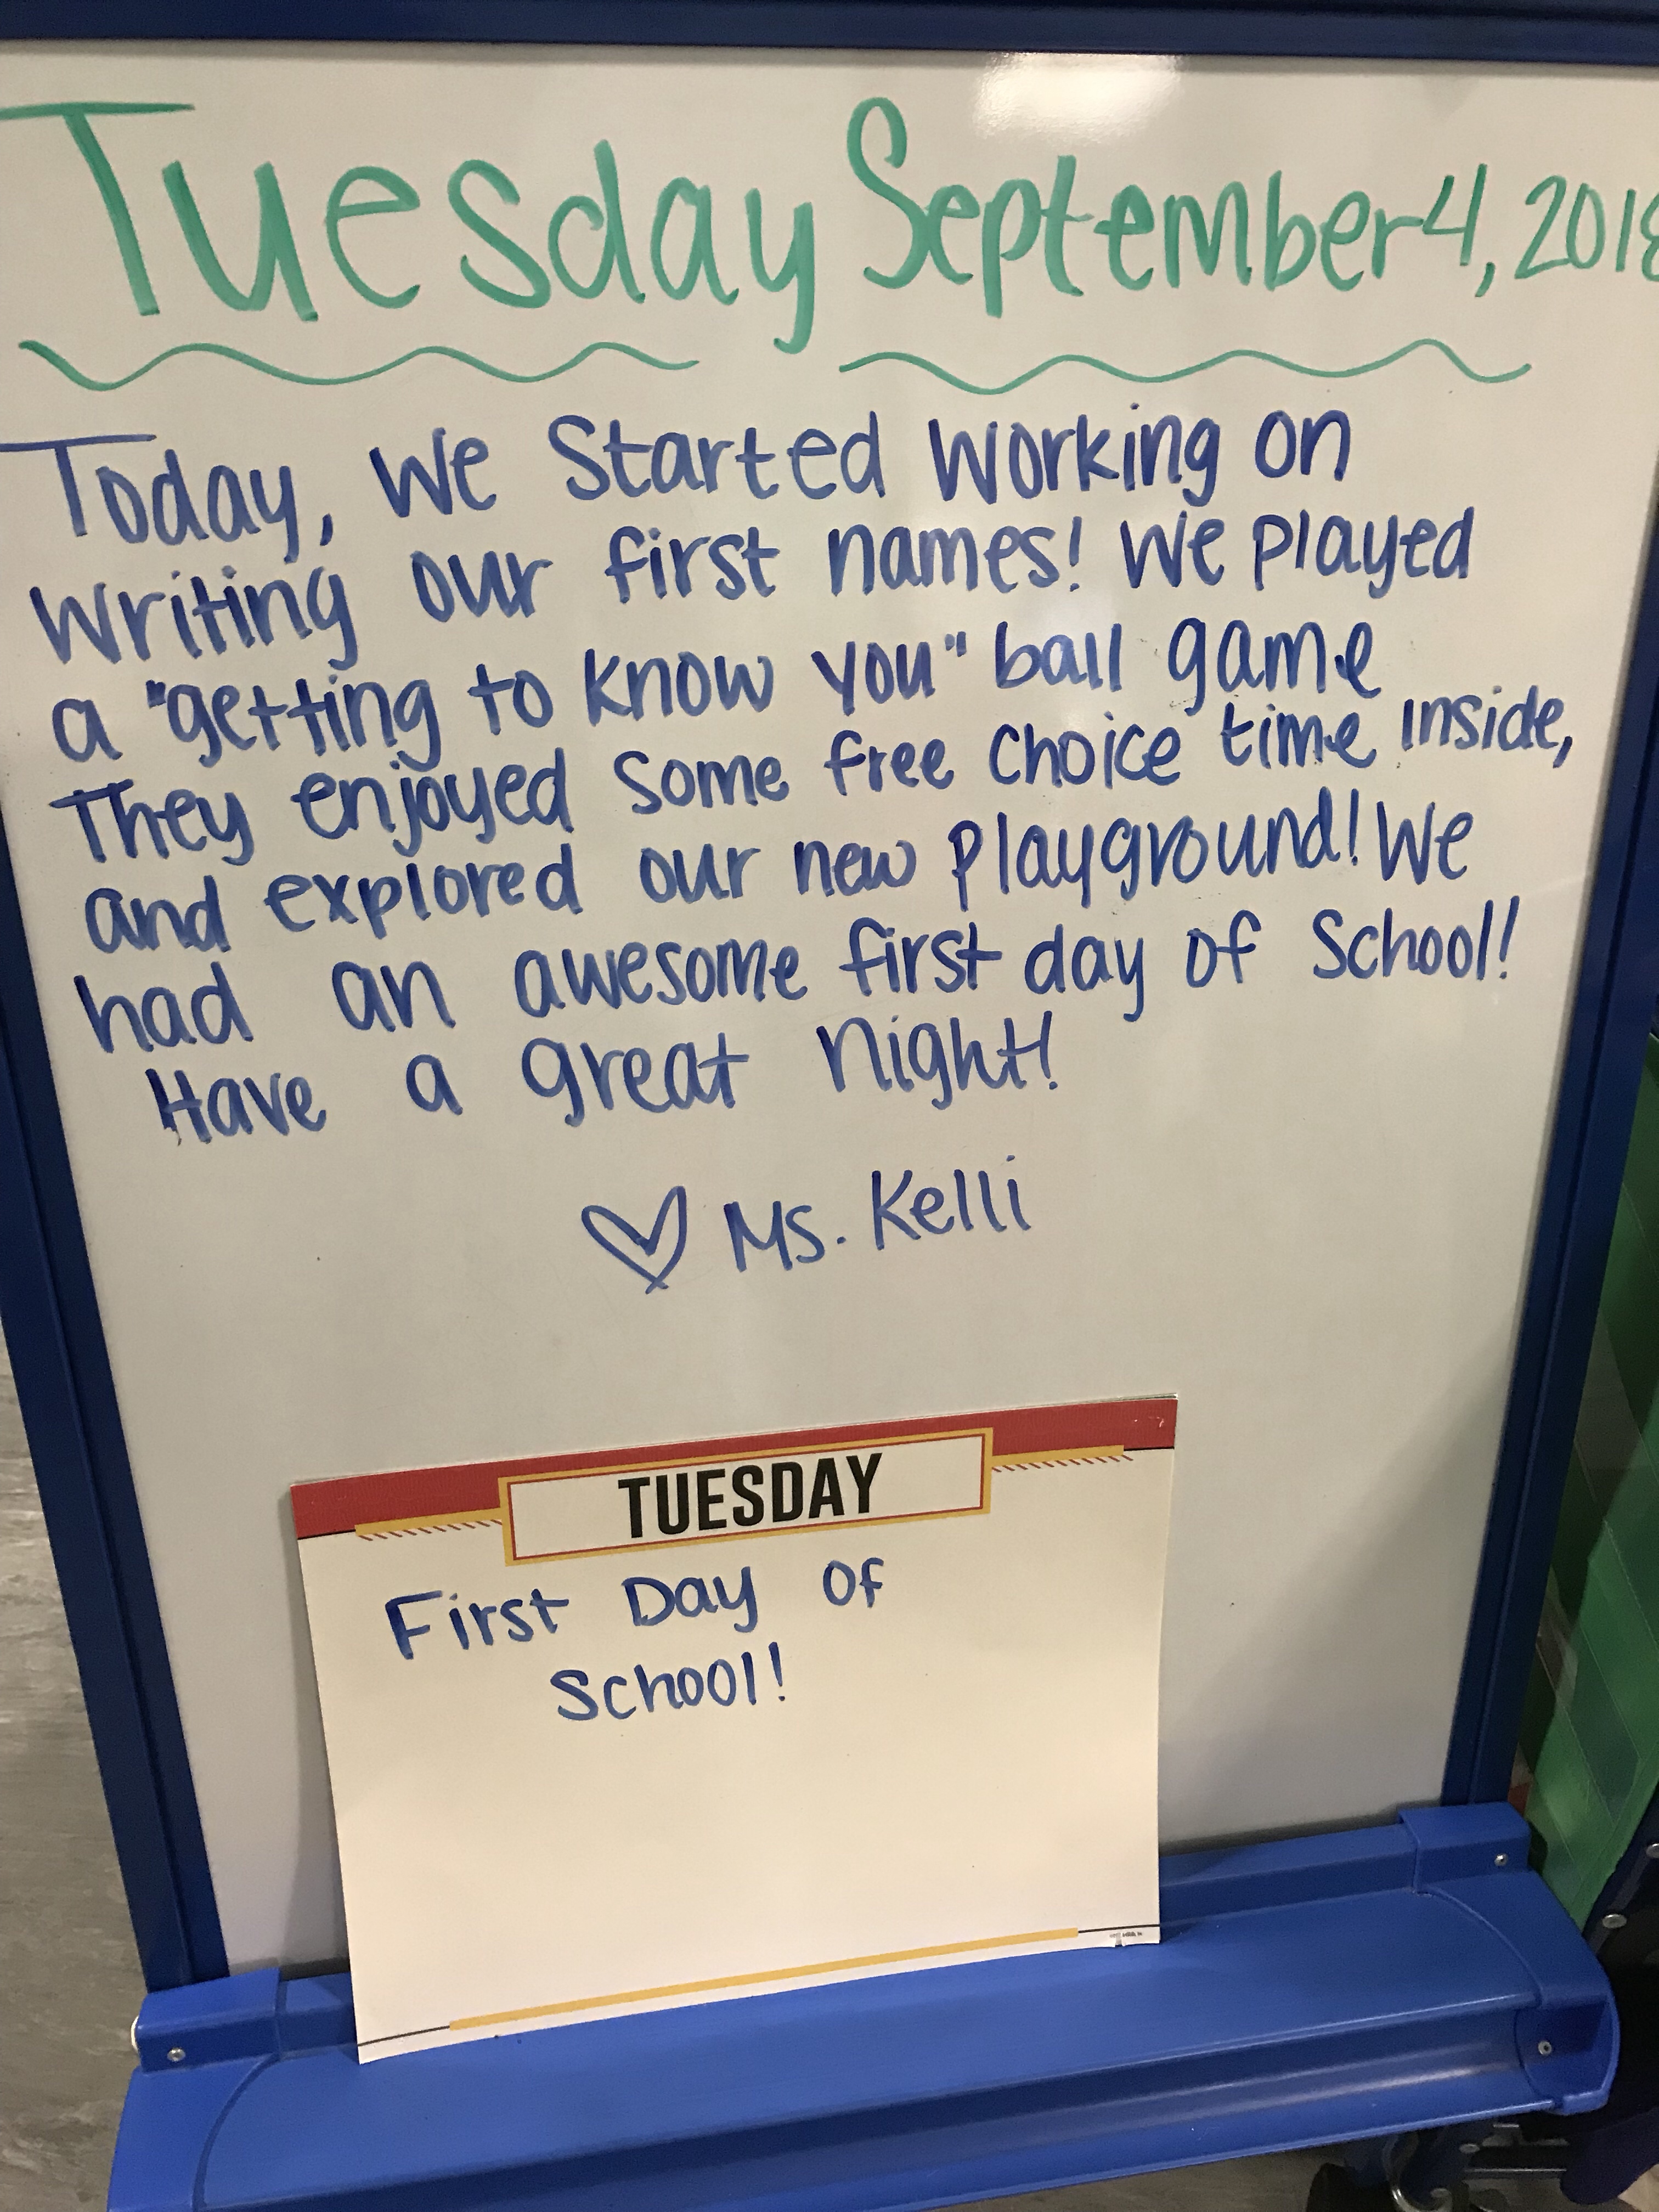 Tuesday September 4, 2018
Today, we started working on
writing our first names! We played
a "getting to know you" ball game
They enjoyed some free choice time inside,
and explored our new playground! We
had an awesome first day of school!
Have a great night!
♡ Ms. Kelli
TUESDAY
First Day of
School!